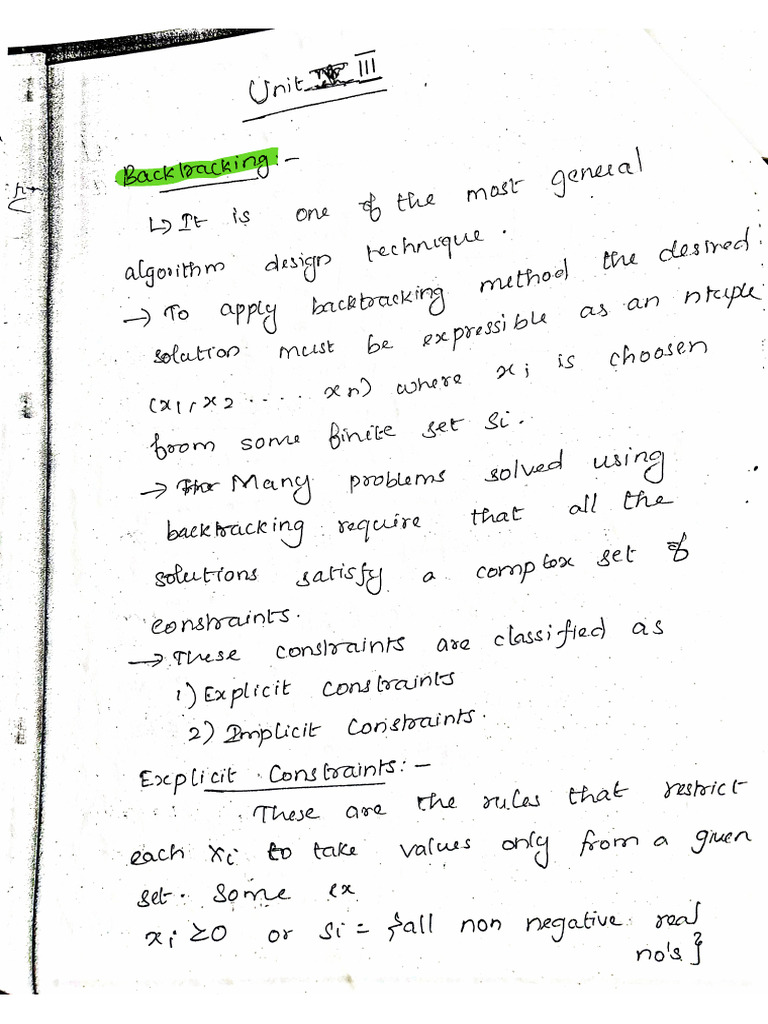 Unit III
Backtracking:-
↳ It is one of the most general
algorithm design technique.
→ To apply backtracking method the desired
solution must be expressible as an ntuple
(x1, x2 .... xn) where xi is choosen
from some finite set Si.
→ Many problems solved using
backtracking require that all the
solutions satisfy a complex set of
constraints.
→ These constraints are classified as
1) Explicit constraints
2) Implicit constraints.
Explicit Constraints:-
These are the rules that restrict
each xi to take values only from a given
set. Some ex
xi ≥0 or Si = {all non negative real
no's}